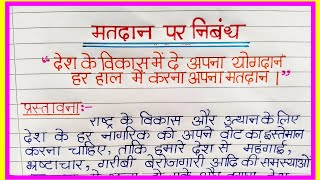 मतदान पर निबंध
“ देश के विकास में दे अपना योगदान
हर हाल में करना अपना मतदान । ”
प्रस्तावना:-
राष्ट्र के विकास और उत्थान के लिए
देश के हर नागरिक को अपने वोट का इस्तेमाल
करना चाहिए, ताकि हमारे देश से महंगाई,
भ्रष्टाचार, गरीबी बेरोजगारी आदि की समस्याओं